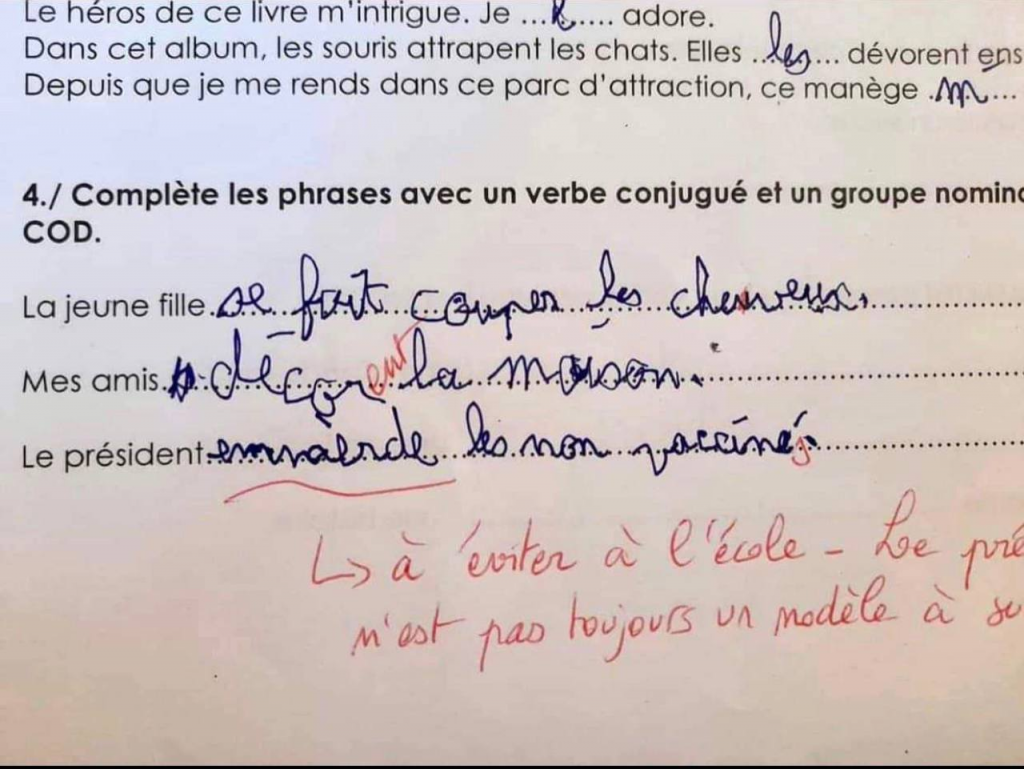 Le héros de ce livre m'intrigue. Je ...l..... adore.
Dans cet album, les souris attrapent les chats. Elles ..les... dévorent ens
Depuis que je me rends dans ce parc d'attraction, ce manège .m....
4./ Complète les phrases avec un verbe conjugué et un groupe nomina
COD.
La jeune fille se fait couper les cheveux.
Mes amis décorent la maison.
Le président emmerde les non vaccinés
↳ à éviter à l'école - Le pré
n'est pas toujours un modèle à su